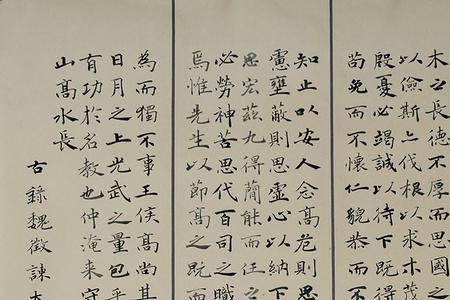 木之長德不厚而思國之
以儉斯亡伐根以求木茂
殷憂必竭誠以待下既得
苟免而不懷仁貌恭而不
知止以安人念高危則思
慮壅蔽則思虛心以納下
思宏茲九得簡能而任之
必勞神苦思代百司之職
焉惟先生以節高之既而
為而獨不事王侯高尚其
日月之上光武之量包乎
有功於名教也仲淹来守
山高水長
古錄魏徵諫太